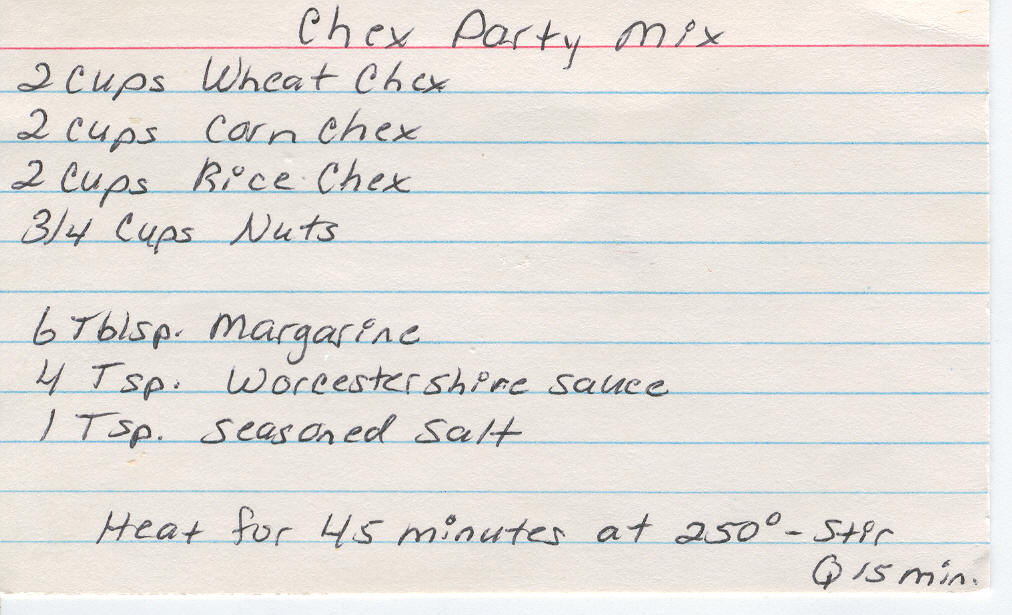 Chex Party Mix
2 Cups Wheat Chex
2 cups Corn Chex
2 Cups Rice Chex
3/4 Cups Nuts
6 Tblsp. Margarine
4 Tsp. Worcestershire sauce
1 Tsp. Seasoned Salt
Heat for 45 minutes at 250° - Stir
Q 15 min.